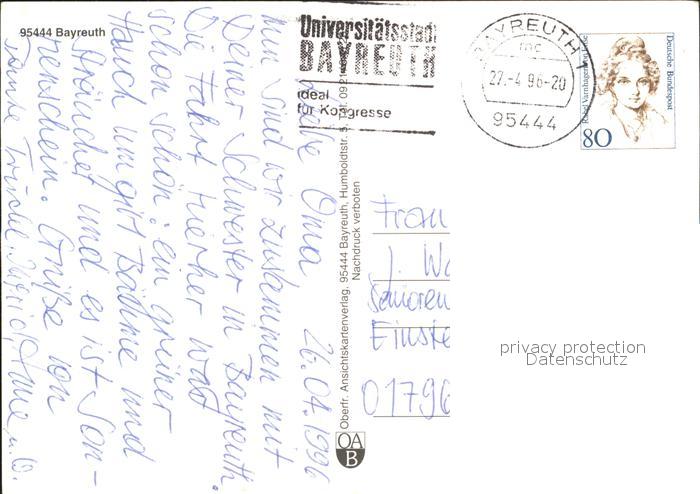 95444 Bayreuth
Universitätsstadt
BAYREUTH
ideal
für Kongresse
BAYREUTH 1
mc
27.-4.96-20
95444
Deutsche Bundespost
Rahel Varnhagen von Ense
80
26.04.1996
Liebe Oma
nun sind wir zusammen mit
Deiner Schwester in Bayreuth.
Die Fahrt hierher war
schon schön: ein grüner
Hauch umgibt Bäume und
Sträucher und es ist Son-
nenschein. Grüße von
Oberfr. Ansichtskartenverlag, 95444 Bayreuth, Humboldtstr. 5, Tel. 0921
Nachdruck verboten
OA
B
Frau
J. Wo
Senioren
Einste
01796
privacy protection
Datenschutz